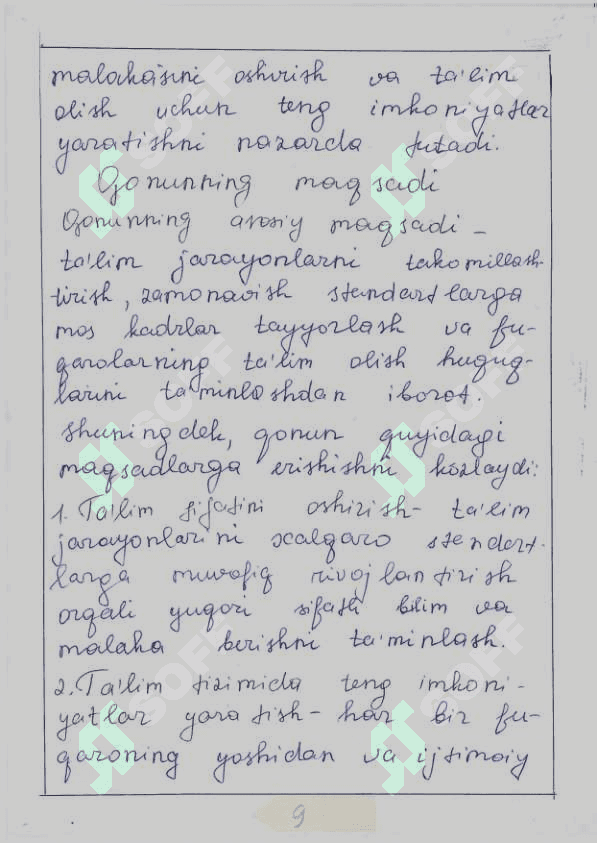 malakasini oshirish va ta'lim
olish uchun teng imkoniyatlar
yaratishni nazarda tutadi.
Qonunning maqsadi
Qonunning asosiy maqsadi -
ta'lim jarayonlarni takomillash-
tirish, zamonavish standartlarga
mos kadrlar tayyorlash va fu-
qarolarning ta'lim olish huquq-
larini ta'minlashdan iborat.
Shuningdek, qonun quyidagi
maqsadlarga erishishni kózlaydi:
1. Ta'lim sifatini oshirish - ta'lim
jarayonlarini xalqaro standart-
larga muvofiq rivojlantirish
orqali yuqori sifatli bilim va
malaka berishni ta'minlash.
2. Ta'lim tizimida teng imkoni-
yatlar yaratish - har bir fu-
qaroning yoshidan va ijtimoiy
9
SOFF
SOFF
SOFF
SOFF
SOFF
SOFF